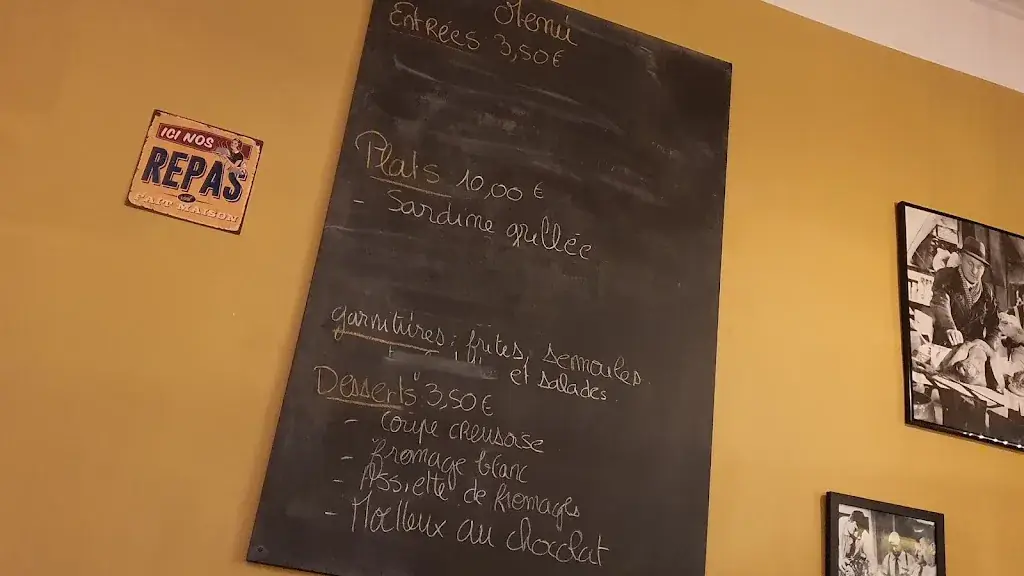 Menu
Entrées 3,50€
ICI NOS
REPAS
FAIT MAISON
Plats 10,00 €
- Sardine grillée
garnitures : frites, semoules
et salades.
Desserts 3,50€
- Coupe creusoise
- fromage blanc
- Assiette de fromages
- Moelleux au chocolat